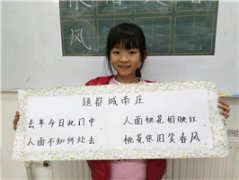 风
題都城南庄
去年今日此门中 人面桃花相映红
人面不知何处去 桃花依旧笑春风